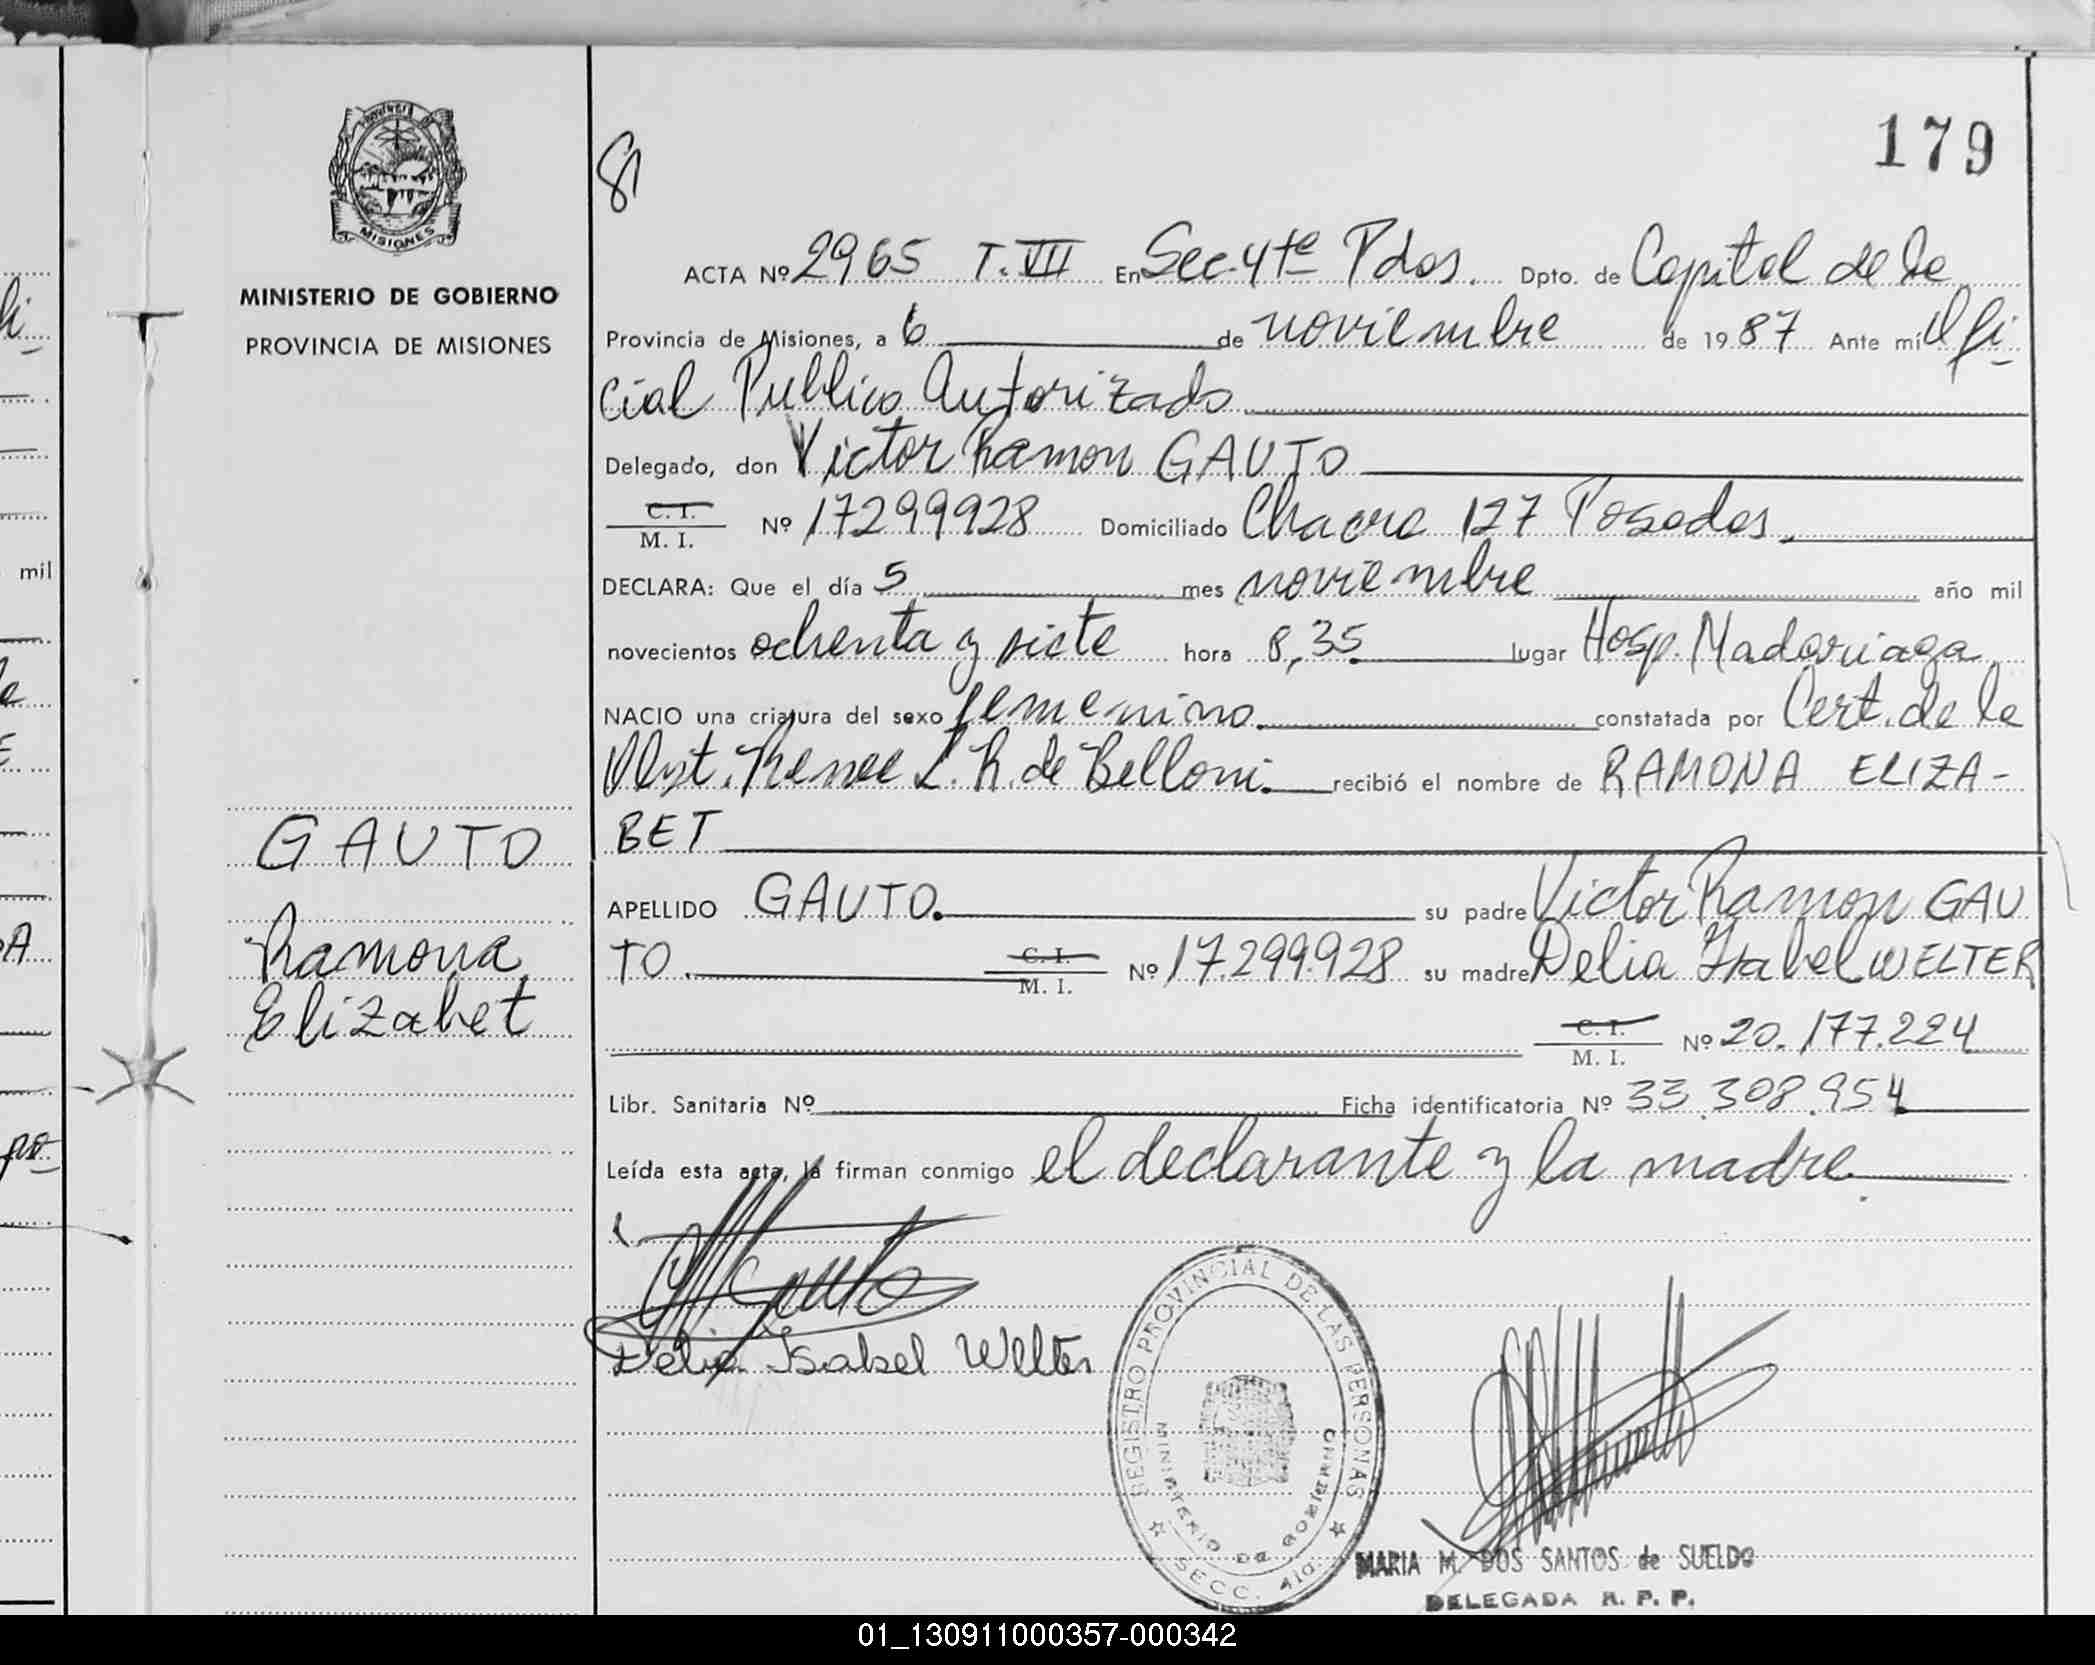 179
PROVINCIA DE MISIONES
MINISTERIO DE GOBIERNO
PROVINCIA DE MISIONES
GAUTO
Ramona
Elizabet
ACTA Nº 2965 T. VII En Sec. 4te Pdas. Dpto. de Capital de la
Provincia de Misiones, a 6 de noviembre de 1987 Ante mí Ofi
cial Publico Autorizado
Delegado, don Victor Ramon GAUTO
C. I.
M. I. Nº 17299928 Domiciliado Chacra 127 Posadas.
DECLARA: Que el día 5 mes noviembre año mil
novecientos ochenta y siete hora 8,35 lugar Hosp. Madariaga
NACIO una criatura del sexo femenino. constatada por Cert. de la
Obst. Renee L. R. de Belloni. recibió el nombre de RAMONA ELIZA-
BET
APELLIDO GAUTO. su padre Victor Ramon GAU
TO. C. I. M. I. Nº 17.299.928 su madre Delia Isabel WELTER
C. I.
M. I. Nº 20.177.224
Libr. Sanitaria Nº Ficha identificatoria Nº 33.308.954
Leída esta acta, la firman conmigo el declarante y la madre.
Gauto
Delia Isabel Welter
REGISTRO PROVINCIAL DE LAS PERSONAS
MINISTERIO DE GOBIERNO
SECC. 4ta.
MARIA M. DOS SANTOS de SUELDO
DELEGADA R. P. P.
mil
01_130911000357-000342